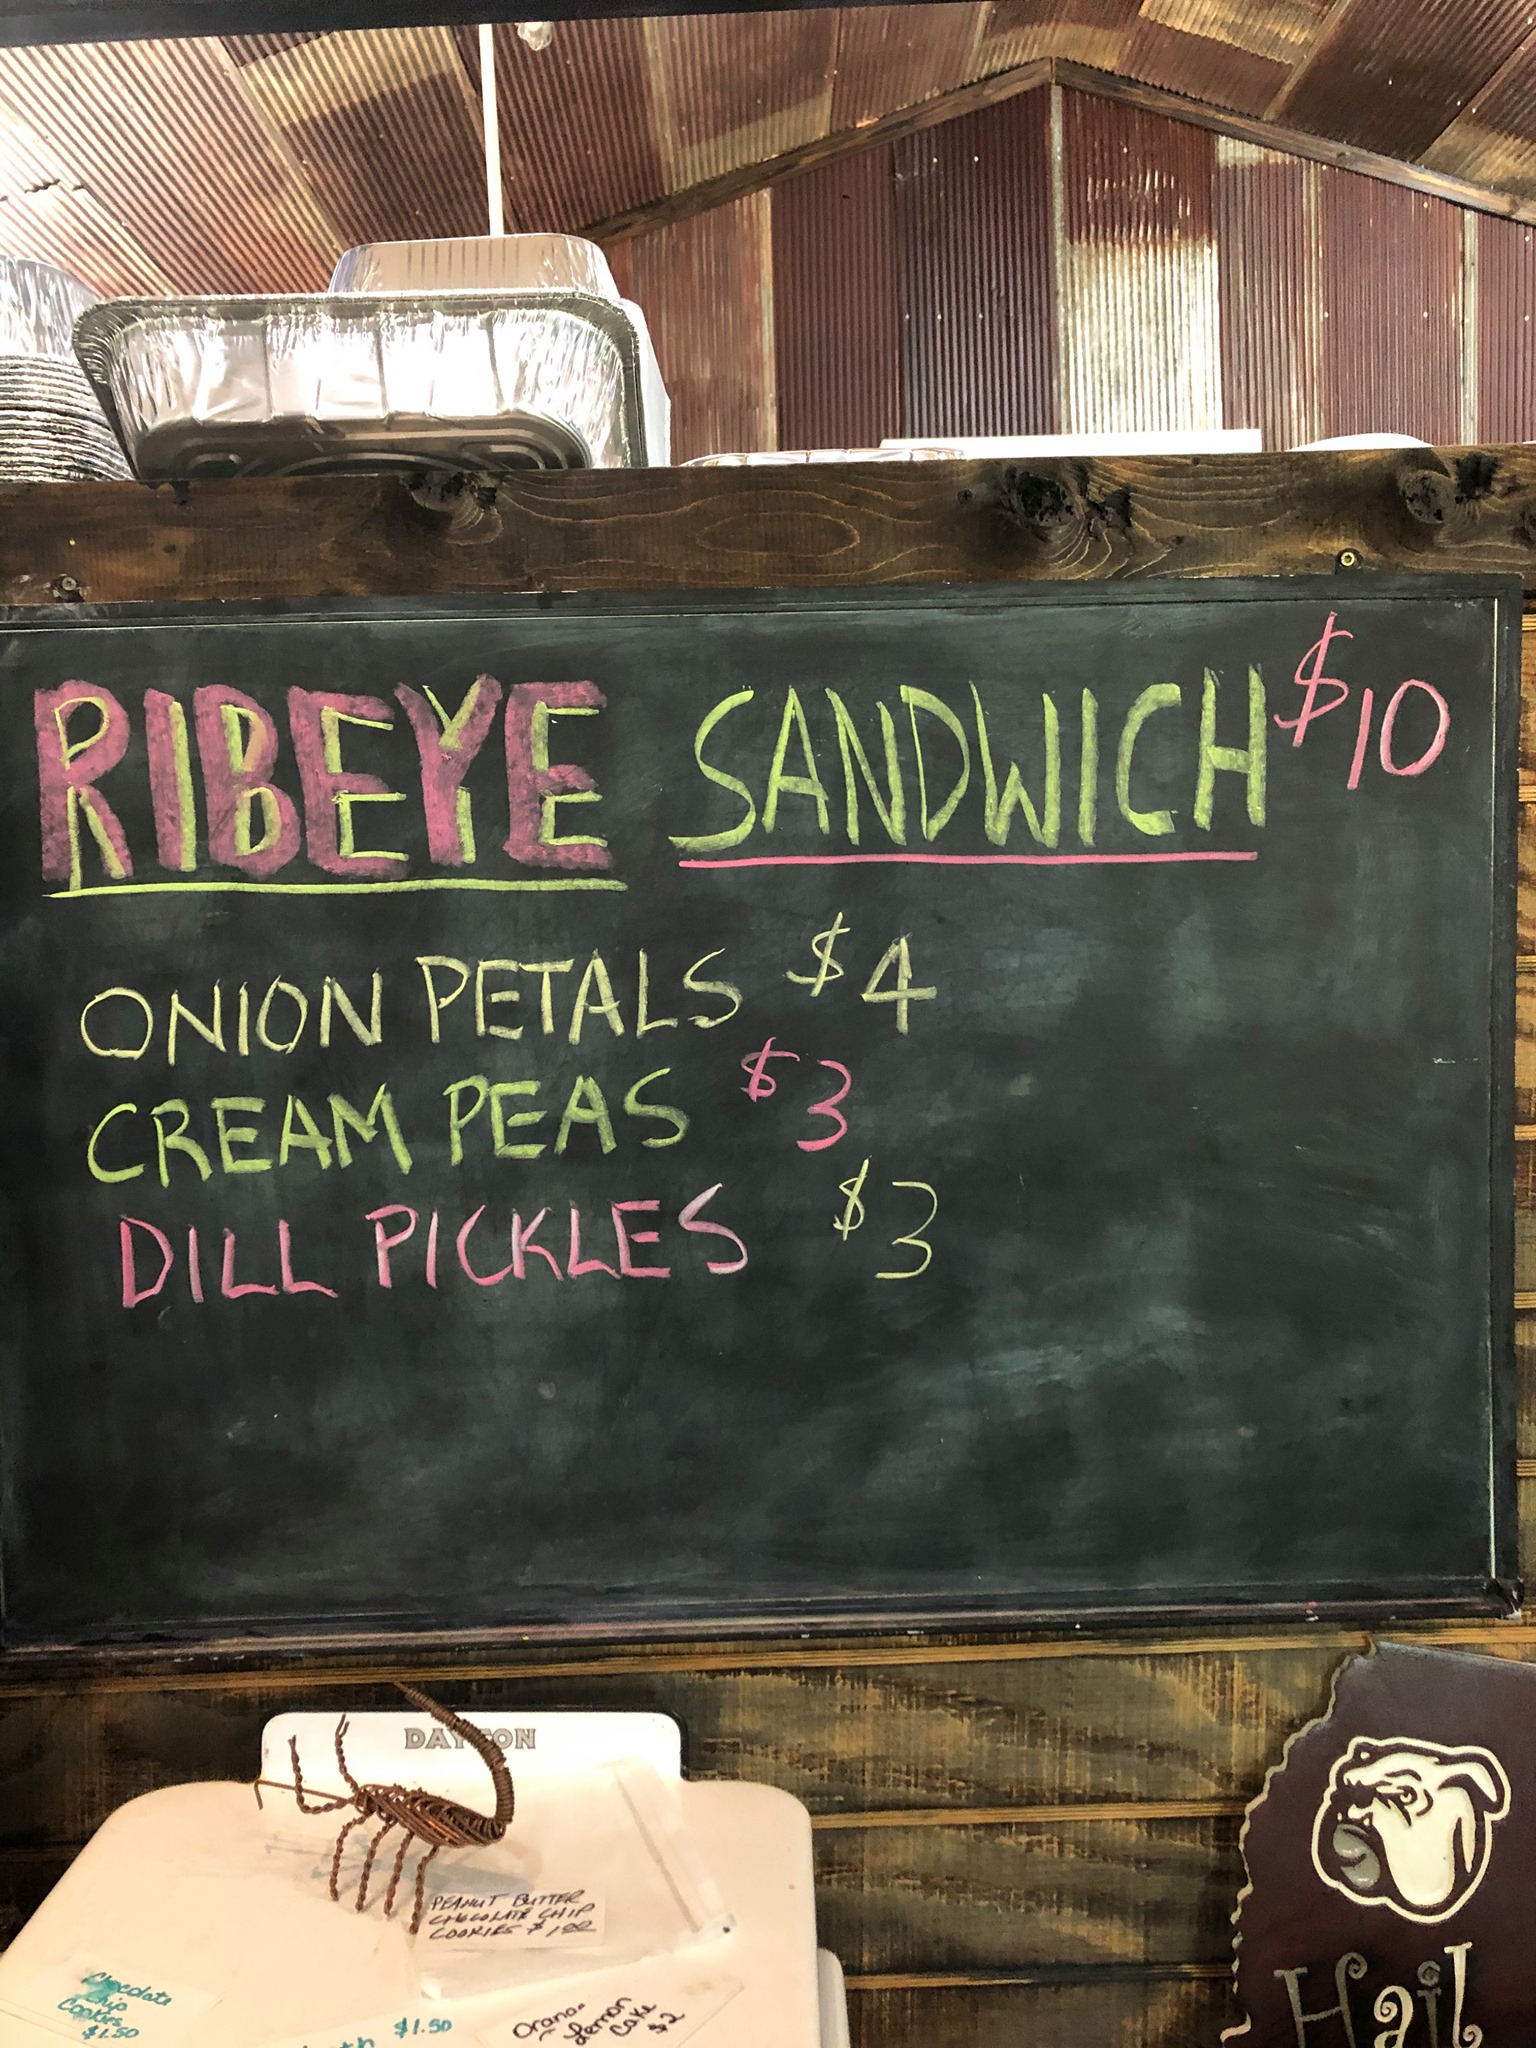 RIBEYE SANDWICH $10
ONION PETALS $4
CREAM PEAS $3
DILL PICKLES $3
DAYTON
PEANUT BUTTER
CHOCOLATE CHIP
COOKIES $1.00
Chocolate
Chip
Cookies
$1.50
$1.50
Lemon
Cake
$2
Hail